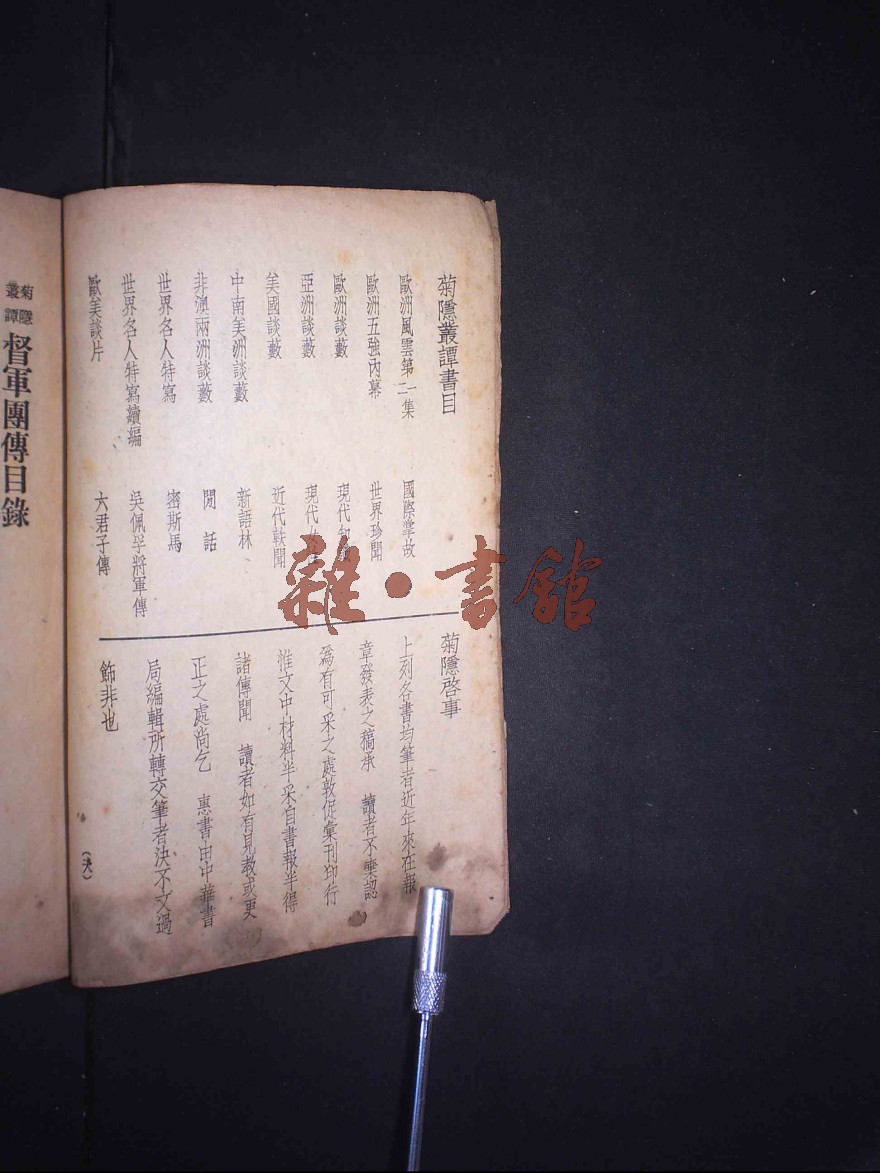 菊隱叢譚書目
歐洲風雲第一二集
歐洲五強內幕
歐洲談藪
亞洲談藪
美國談藪
中南美洲談藪
非澳兩洲談藪
世界名人特寫
世界名人特寫續編
歐美談片
國際掌故
世界珍聞
現代
現代
近代軼聞
新語林
閒話
密斯馬
吳佩孚將軍傳
六君子傳
菊隱啓事
上列各書均筆者近年來在報
章發表之稿承 讀者不棄認
為有可采之處敦促彙刊印行
惟文中材料半采自書報半得
諸傳聞 讀者如有見教或更
正之處尚乞 惠書由中華書
局編輯所轉交筆者決不文過
飾非也
菊隱叢譚 督軍團傳目錄
雜·書館